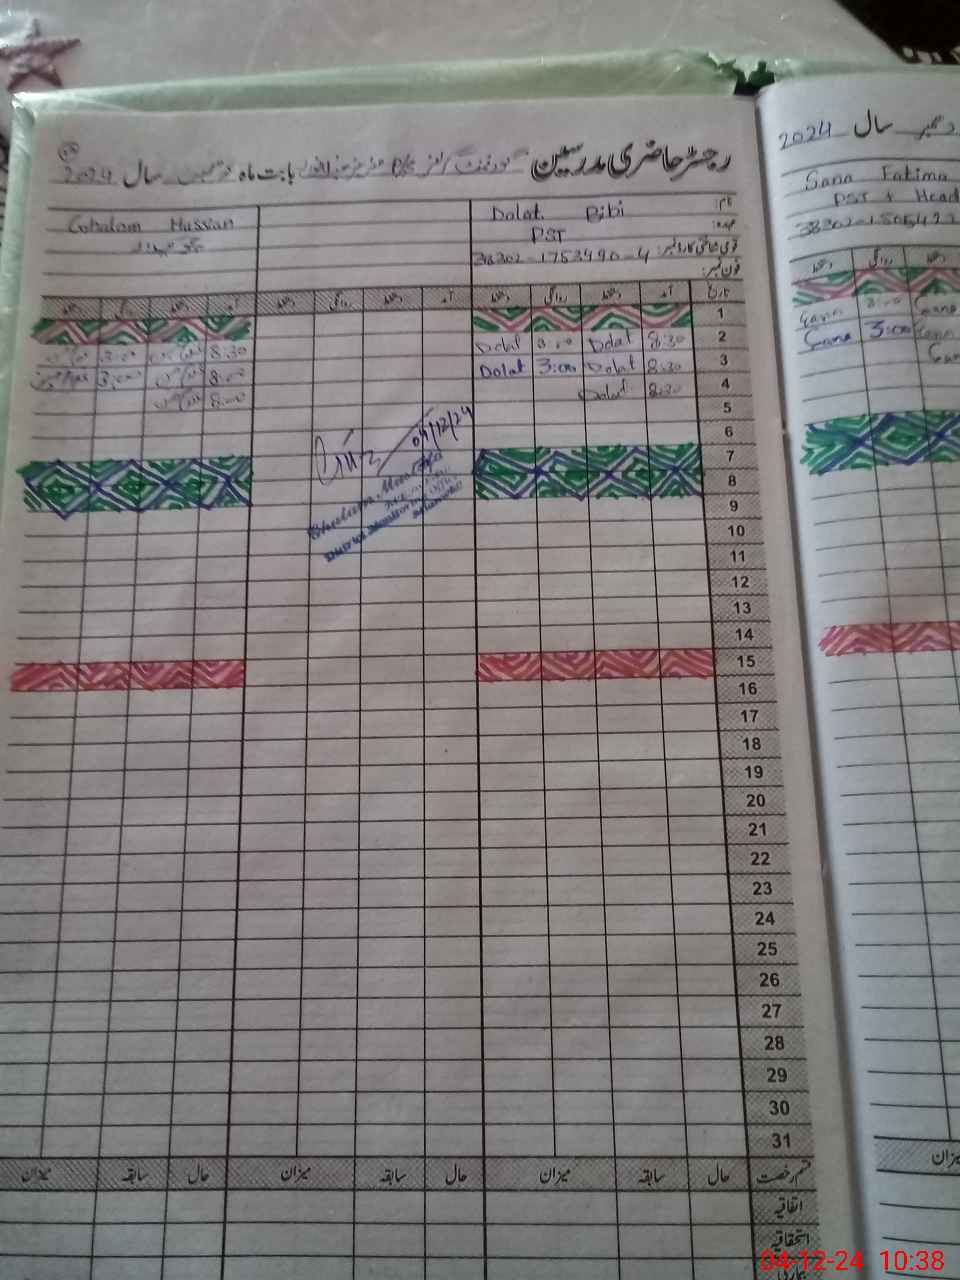 رجسٹر حاضری مدرسین بابت ماہ سال 2024
نام: Dolat Bibi
عہدہ: PST
قومی شناختی کارڈ نمبر: 38302-1753490-4
فون نمبر:
Gohalam Hussian
تاریخ آمد دستخط روانگی دستخط آمد دستخط روانگی دستخط آمد دستخط روانگی دستخط
1
2 8:30 Dolat 3:00 Dolat 8:30 3:00
3 8:30 Dolat 3:00 Dolat 8:00 3:00
4 8:30 Dolat 8:00
5
6
7
8
9
10
11
12
13
14
15
16
17
18
19
20
21
22
23
24
25
26
27
28
29
30
31
04/12/24
قسم رخصت حال سابقہ میزان حال سابقہ میزان حال سابقہ میزان
اتفاقیہ
استحقاقیہ
دسمبر سال 2024
Sana Fatima
PST + Head
38302-1505422
دستخط روانگی دستخط
Sana 3:00 Sana
Sana 3:00 Sana
Sana
میزان
04-12-24 10:38